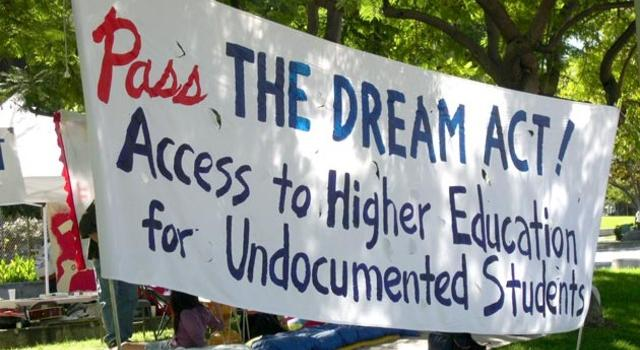 Pass THE DREAM ACT!
Access to Higher Education
for Undocumented Students